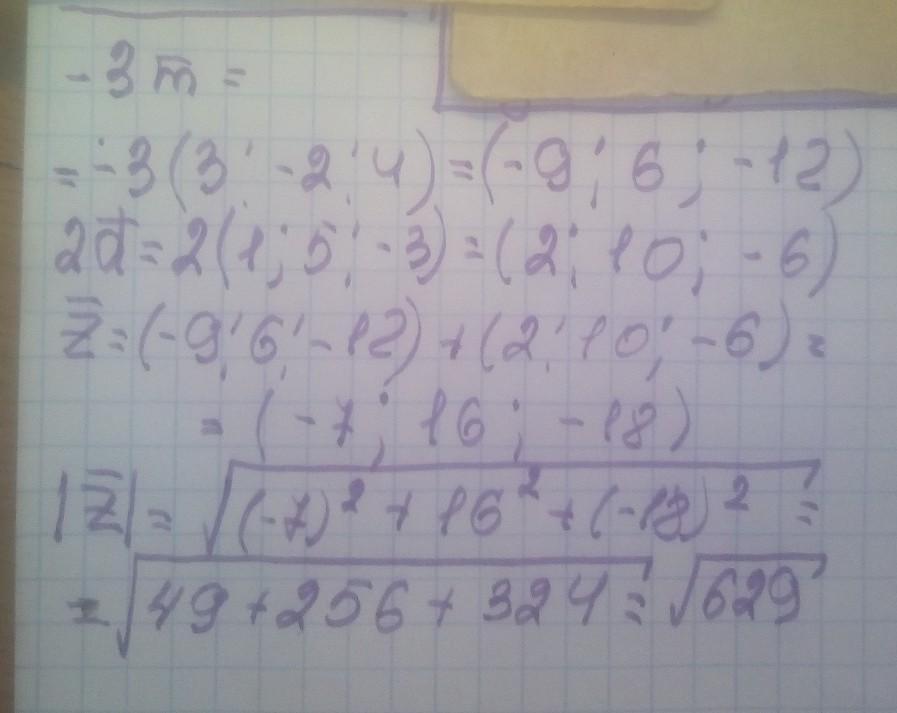 -3m̅ =
= -3(3; -2; 4) = (-9; 6; -12)
2a̅ = 2(1; 5; -3) = (2; 10; -6)
z̅ = (-9; 6; -12) + (2; 10; -6) =
= (-7; 16; -18)
|z̅| = √((-7)² + 16² + (-18)²) =
= √(49 + 256 + 324) = √629